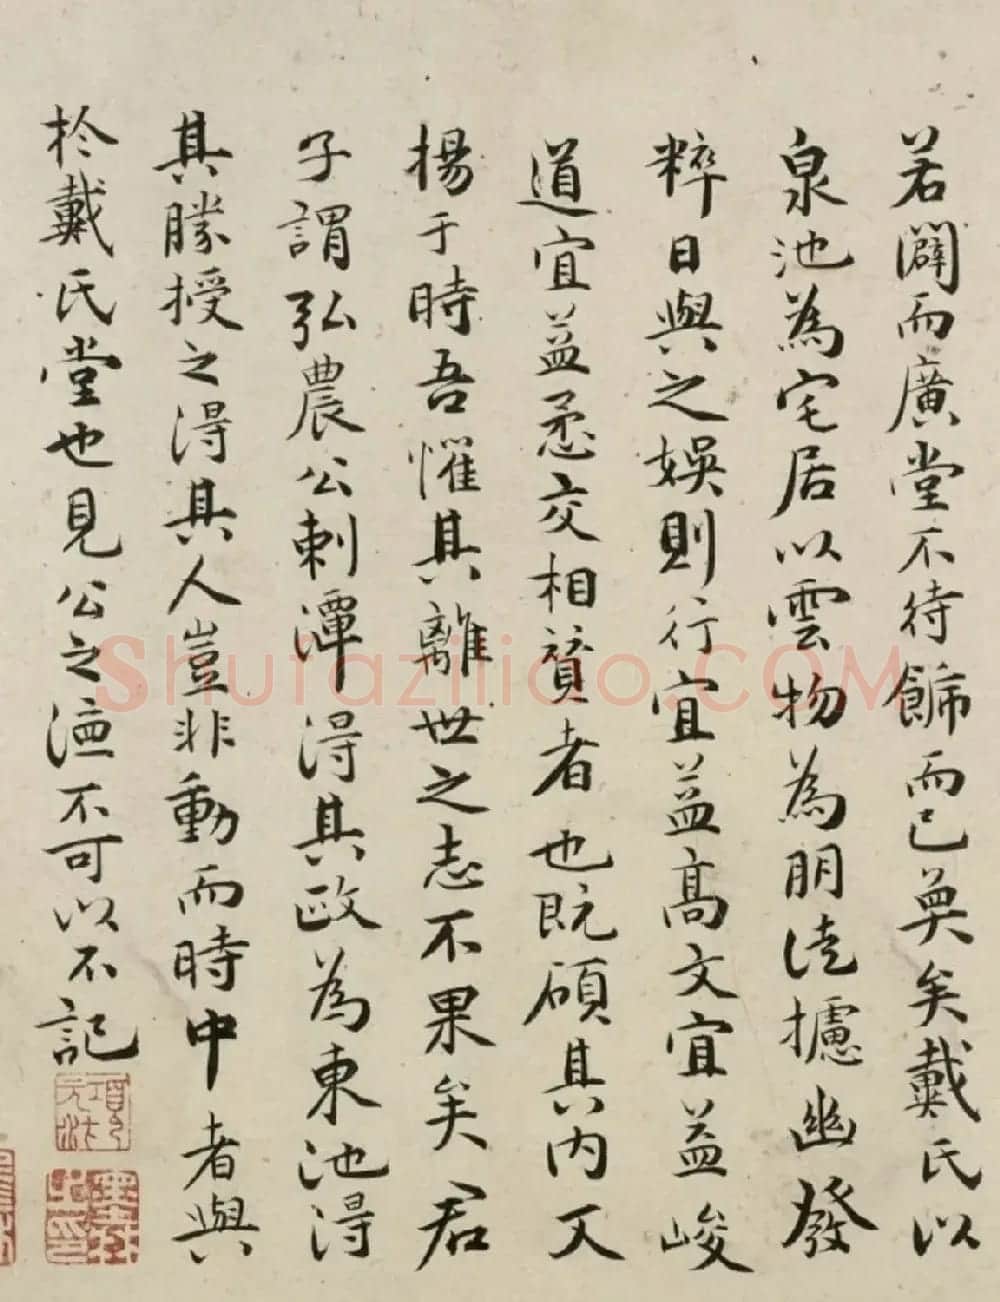 若闢而廣堂不待飾而已奐矣戴氏以
泉池為宅居以雲物為朋徒攄幽發
粹日與之娛則行宜益高文宜益峻
道宜益懋交相贊者也既碩其內又
揚于時吾懼其離世之志不果矣君
子謂弘農公刺潭得其政為東池得
其勝授之得其人豈非動而時中者與
於戴氏堂也見公之德不可以不記
Shufaziliao.COM